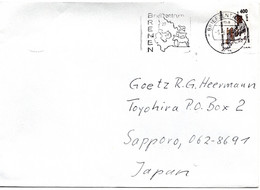 Briefzentrum
BREMEN
400
Goetz R.G. Heermann
Toyohira P.O. Box 2
Sapporo, 062-8691
Japan